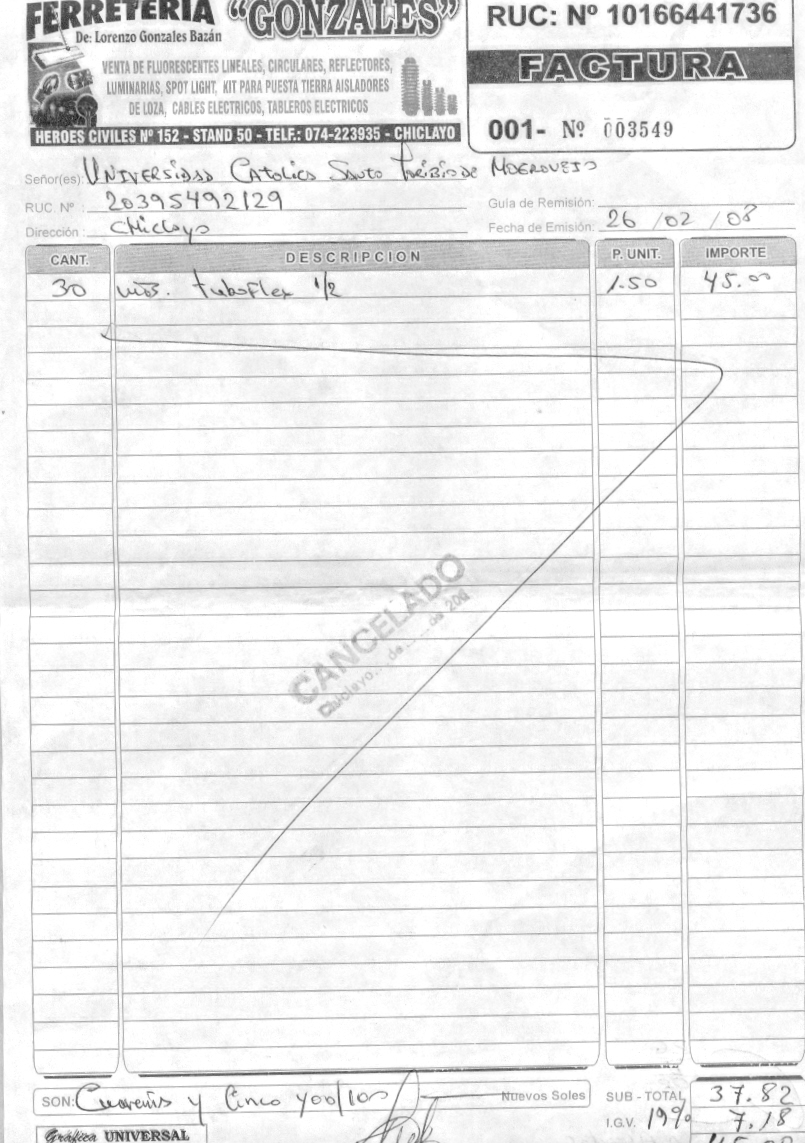 FERRETERIA "GONZALES"
De: Lorenzo Gonzales Bazán
VENTA DE FLUORESCENTES LINEALES, CIRCULARES, REFLECTORES,
LUMINARIAS, SPOT LIGHT, KIT PARA PUESTA TIERRA AISLADORES
DE LOZA, CABLES ELECTRICOS, TABLEROS ELECTRICOS
HEROES CIVILES Nº 152 - STAND 50 - TELF.: 074-223935 - CHICLAYO
RUC: Nº 10166441736
FACTURA
001- Nº 003549
Señor(es): Universidad Catolica Santo Toribio de Mogrovejo
RUC Nº : 20395492129
Guía de Remisión:
Dirección : Chiclayo
Fecha de Emisión: 26 / 02 / 08
CANT. DESCRIPCION P. UNIT. IMPORTE
30 tuboflex 1/2 1.50 45.00
CANCELADO
Chiclayo.... de...... de 200
SON: Cuarenta y Cinco y 00/100 Nuevos Soles
SUB - TOTAL 37.82
I.G.V. 19% 7.18
Gráfica UNIVERSAL